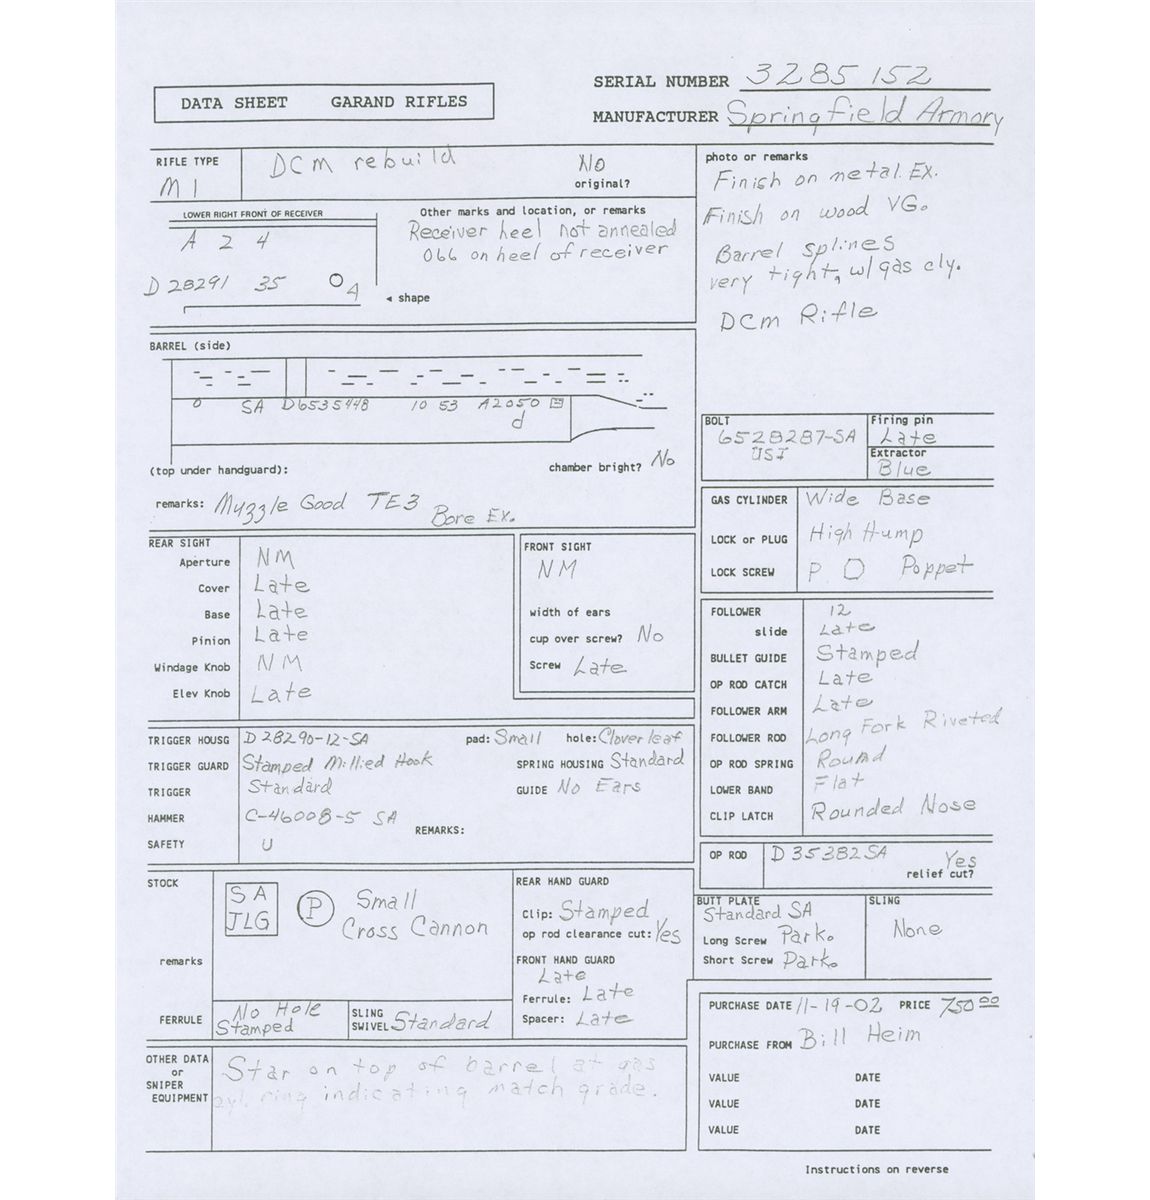 DATA SHEET GARAND RIFLES
SERIAL NUMBER 3285152
MANUFACTURER Springfield Armory
RIFLE TYPE
M1
DCM rebuild
No
original?
LOWER RIGHT FRONT OF RECEIVER
A 2 4
D 28291 35 O 4
◄ shape
Other marks and location, or remarks
Receiver heel not annealed
O66 on heel of receiver
photo or remarks
Finish on metal. EX.
Finish on wood VG.
Barrel splines
very tight, w/gas cly.
DCM Rifle
BARREL (side)
O SA D6535448 10 53 A2050
d
(top under handguard):
chamber bright? No
remarks: Muzzle Good TE3
Bore EX.
BOLT
6528287-SA
Firing pin
Late
Extractor
Blue
GAS CYLINDER Wide Base
LOCK or PLUG High Hump
LOCK SCREW P O Poppet
REAR SIGHT
Aperture NM
Cover Late
Base Late
Pinion Late
Windage Knob NM
Elev Knob Late
FRONT SIGHT
NM
width of ears
cup over screw? No
Screw Late
FOLLOWER 12
slide Late
BULLET GUIDE Stamped
OP ROD CATCH Late
FOLLOWER ARM Late
FOLLOWER ROD Long Fork Riveted
OP ROD SPRING Round
LOWER BAND Flat
CLIP LATCH Rounded Nose
TRIGGER HOUSG D28290-12-SA pad: Small hole: Cloverleaf
TRIGGER GUARD Stamped Millied Hook SPRING HOUSING Standard
TRIGGER Standard GUIDE No Ears
HAMMER C-46008-5 SA
REMARKS:
SAFETY U
OP ROD D35382SA Yes
relief cut?
STOCK
SA
JLG
P
Small
Cross Cannon
remarks
FERRULE No Hole
Stamped
SLING
SWIVEL Standard
REAR HAND GUARD
Clip: Stamped
op rod clearance cut: Yes
FRONT HAND GUARD
Late
Ferrule: Late
Spacer: Late
BUTT PLATE
Standard SA
Long Screw Park.
Short Screw Park.
SLING
None
OTHER DATA
or
SNIPER
EQUIPMENT
Star on top of barrel at gas
cyl. ring indicating match grade.
PURCHASE DATE 11-19-02 PRICE 750 00
PURCHASE FROM Bill Heim
VALUE DATE
VALUE DATE
VALUE DATE
Instructions on reverse